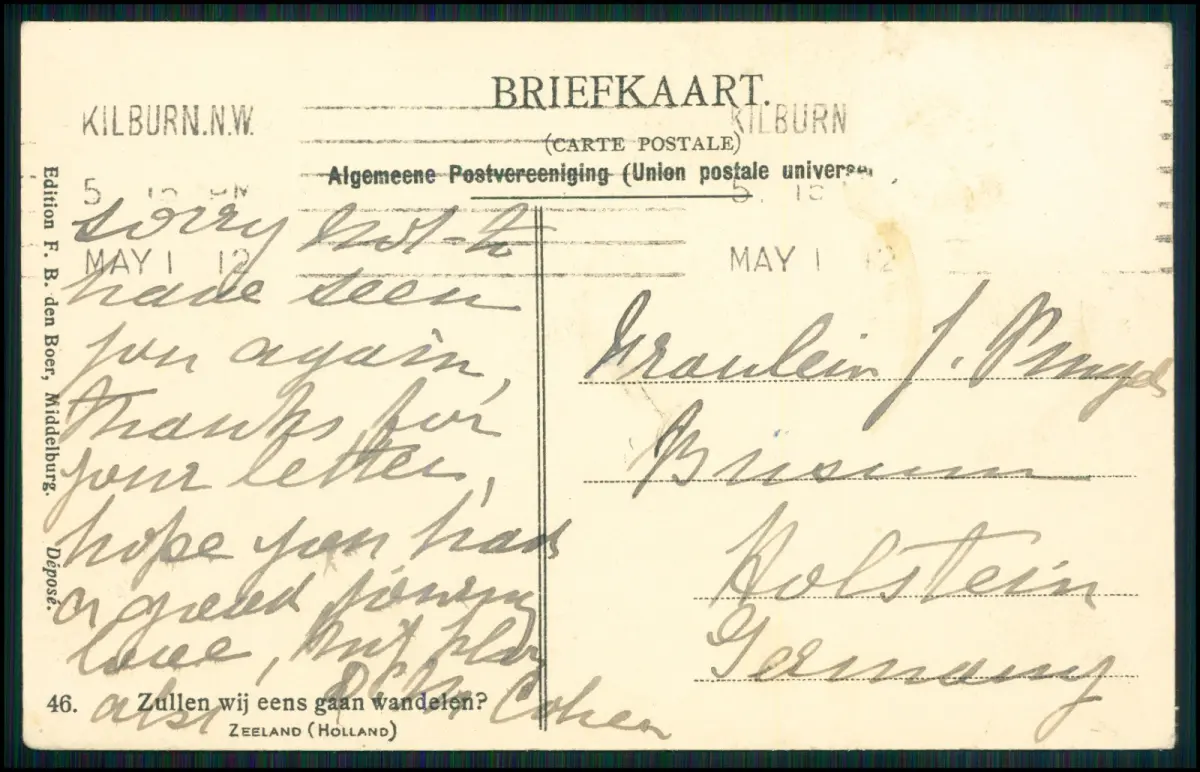 BRIEFKAART.
(CARTE POSTALE)
Algemeene Postvereeniging (Union postale univers
KILBURN.N.W.
5 15 PM
MAY 1 12
KILBURN
5. 15
MAY 1 12
sorry not to
have seen
you again,
thanks for
your letter,
hope you had
a good journey
love,
also Cohen
Fraulein J.
Busum
Holstein
Germany
Edition F. B. den Boer, Middelburg. Déposé.
46. Zullen wij eens gaan wandelen?
ZEELAND (HOLLAND)